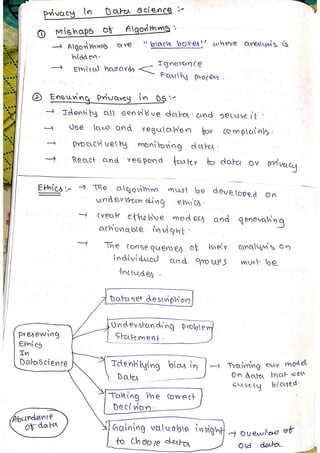 Privacy in Data science :-
① Mishaps of Algorithms :-
→ Algorithms are "black boxes" where analysis is
hidden.
→ Ethical hazards < Ignorance
Faulty process.
② Ensuring Privacy in DS :-
→ Identify all sensitive data and secure it.
→ Use law and regulation for complaints.
→ proactively monitoring data.
→ React and respond faster to data or privacy
Ethics :- → The algorithm must be developed on
understanding ethics.
→ create effective models and generating
actionable insight.
→ The consequences of their analysis on
individual and groups must be
includes.
preserving
Ethics
In
DataScience
Dataset description
Understanding problem
statement.
Identifying bias in
Data
→ Training our model
on data that were
surely biased.
Taking the correct
Decision.
Gaining valuable insight
to choose data
→ Overview of
old data.
Abundance
of data